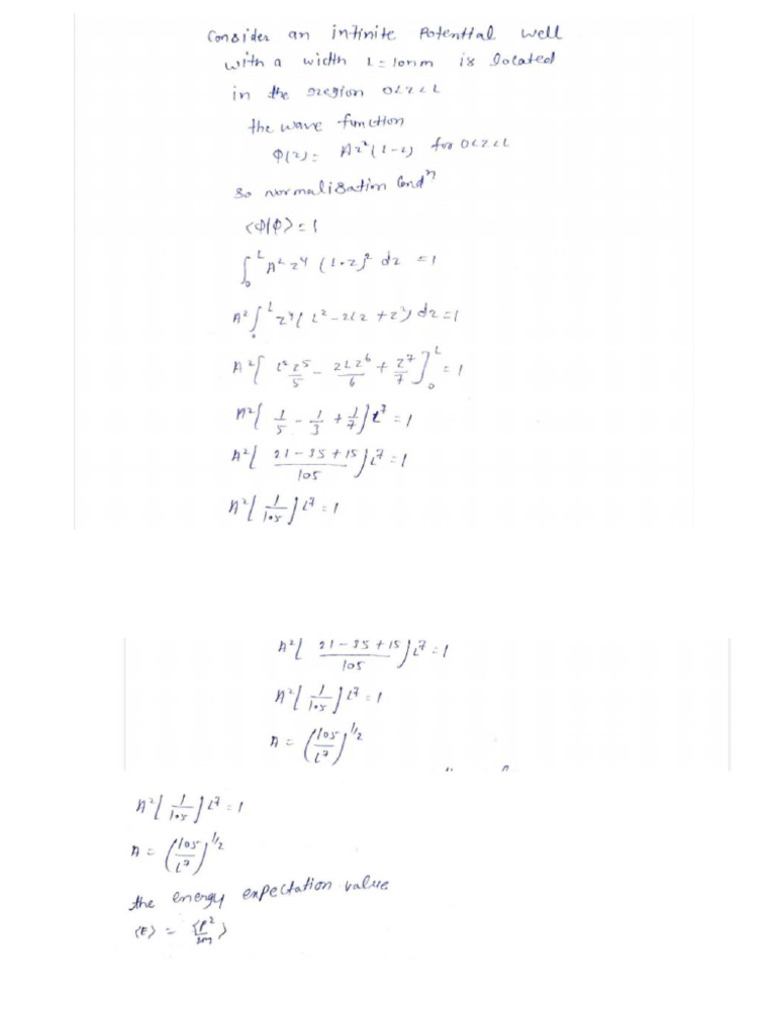 Consider an infinite Potential well
with a width L = 10nm is located
in the region 0<z<L
the wave function
Φ(z) = Az²(L-z) for 0<z<L
so normalisation Condⁿ
⟨Φ|Φ⟩ = 1
∫₀ᴸ A² z⁴ (L-z)² dz = 1
A² ∫₀ᴸ z⁴( L² - 2Lz + z²) dz = 1
A² [ L² z⁵/5 - 2L z⁶/6 + z⁷/7 ]₀ᴸ = 1
A² [ 1/5 - 1/3 + 1/7 ] L⁷ = 1
A² [ (21-35+15)/105 ] L⁷ = 1
A² [ 1/105 ] L⁷ = 1
A² [ (21-35+15)/105 ] L⁷ = 1
A² [ 1/105 ] L⁷ = 1
A = (105/L⁷)^1/2
A² [ 1/105 ] L⁷ = 1
A = (105/L⁷)^1/2
the energy expectation value
⟨E⟩ = ⟨P²/2m⟩